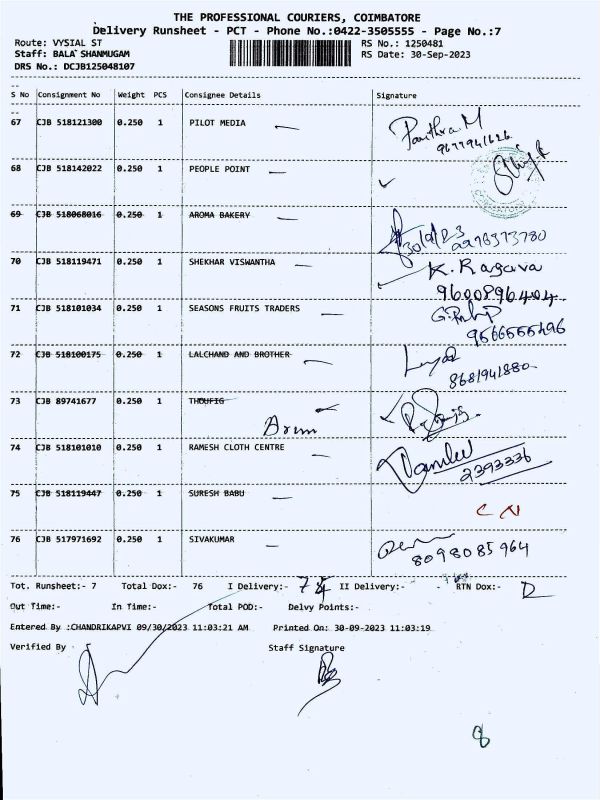 THE PROFESSIONAL COURIERS, COIMBATORE
Delivery Runsheet - PCT - Phone No.:0422-3505555 - Page No.:7
Route: VYSIAL ST RS No.: 1250481
Staff: BALA SHANMUGAM RS Date: 30-Sep-2023
DRS No.: DCJB125048107
S No Consignment No Weight PCS Consignee Details Signature
67 CJB 518121300 0.250 1 PILOT MEDIA
68 CJB 518142022 0.250 1 PEOPLE POINT
69 CJB 518068016 0.250 1 AROMA BAKERY
30/9/23
70 CJB 518119471 0.250 1 SHEKHAR VISWANTHA K. Ragava
9600896404
71 CJB 518101034 0.250 1 SEASONS FRUITS TRADERS
9566555496
72 CJB 518100175 0.250 1 LALCHAND AND BROTHER
8681941880
73 CJB 89741677 0.250 1 THOUFIG
74 CJB 518101010 0.250 1 RAMESH CLOTH CENTRE
2393336
75 CJB 518119447 0.250 1 SURESH BABU
CN
76 CJB 517971692 0.250 1 SIVAKUMAR
8098085964
Tot. Runsheet:- 7 Total Dox:- 76 I Delivery:- II Delivery:- RTN Dox:-
Out Time:- In Time:- Total POD:- Delvy Points:-
Entered By :CHANDRIKAPVI 09/30/2023 11:03:21 AM Printed On: 30-09-2023 11:03:19
Verified By Staff Signature
8